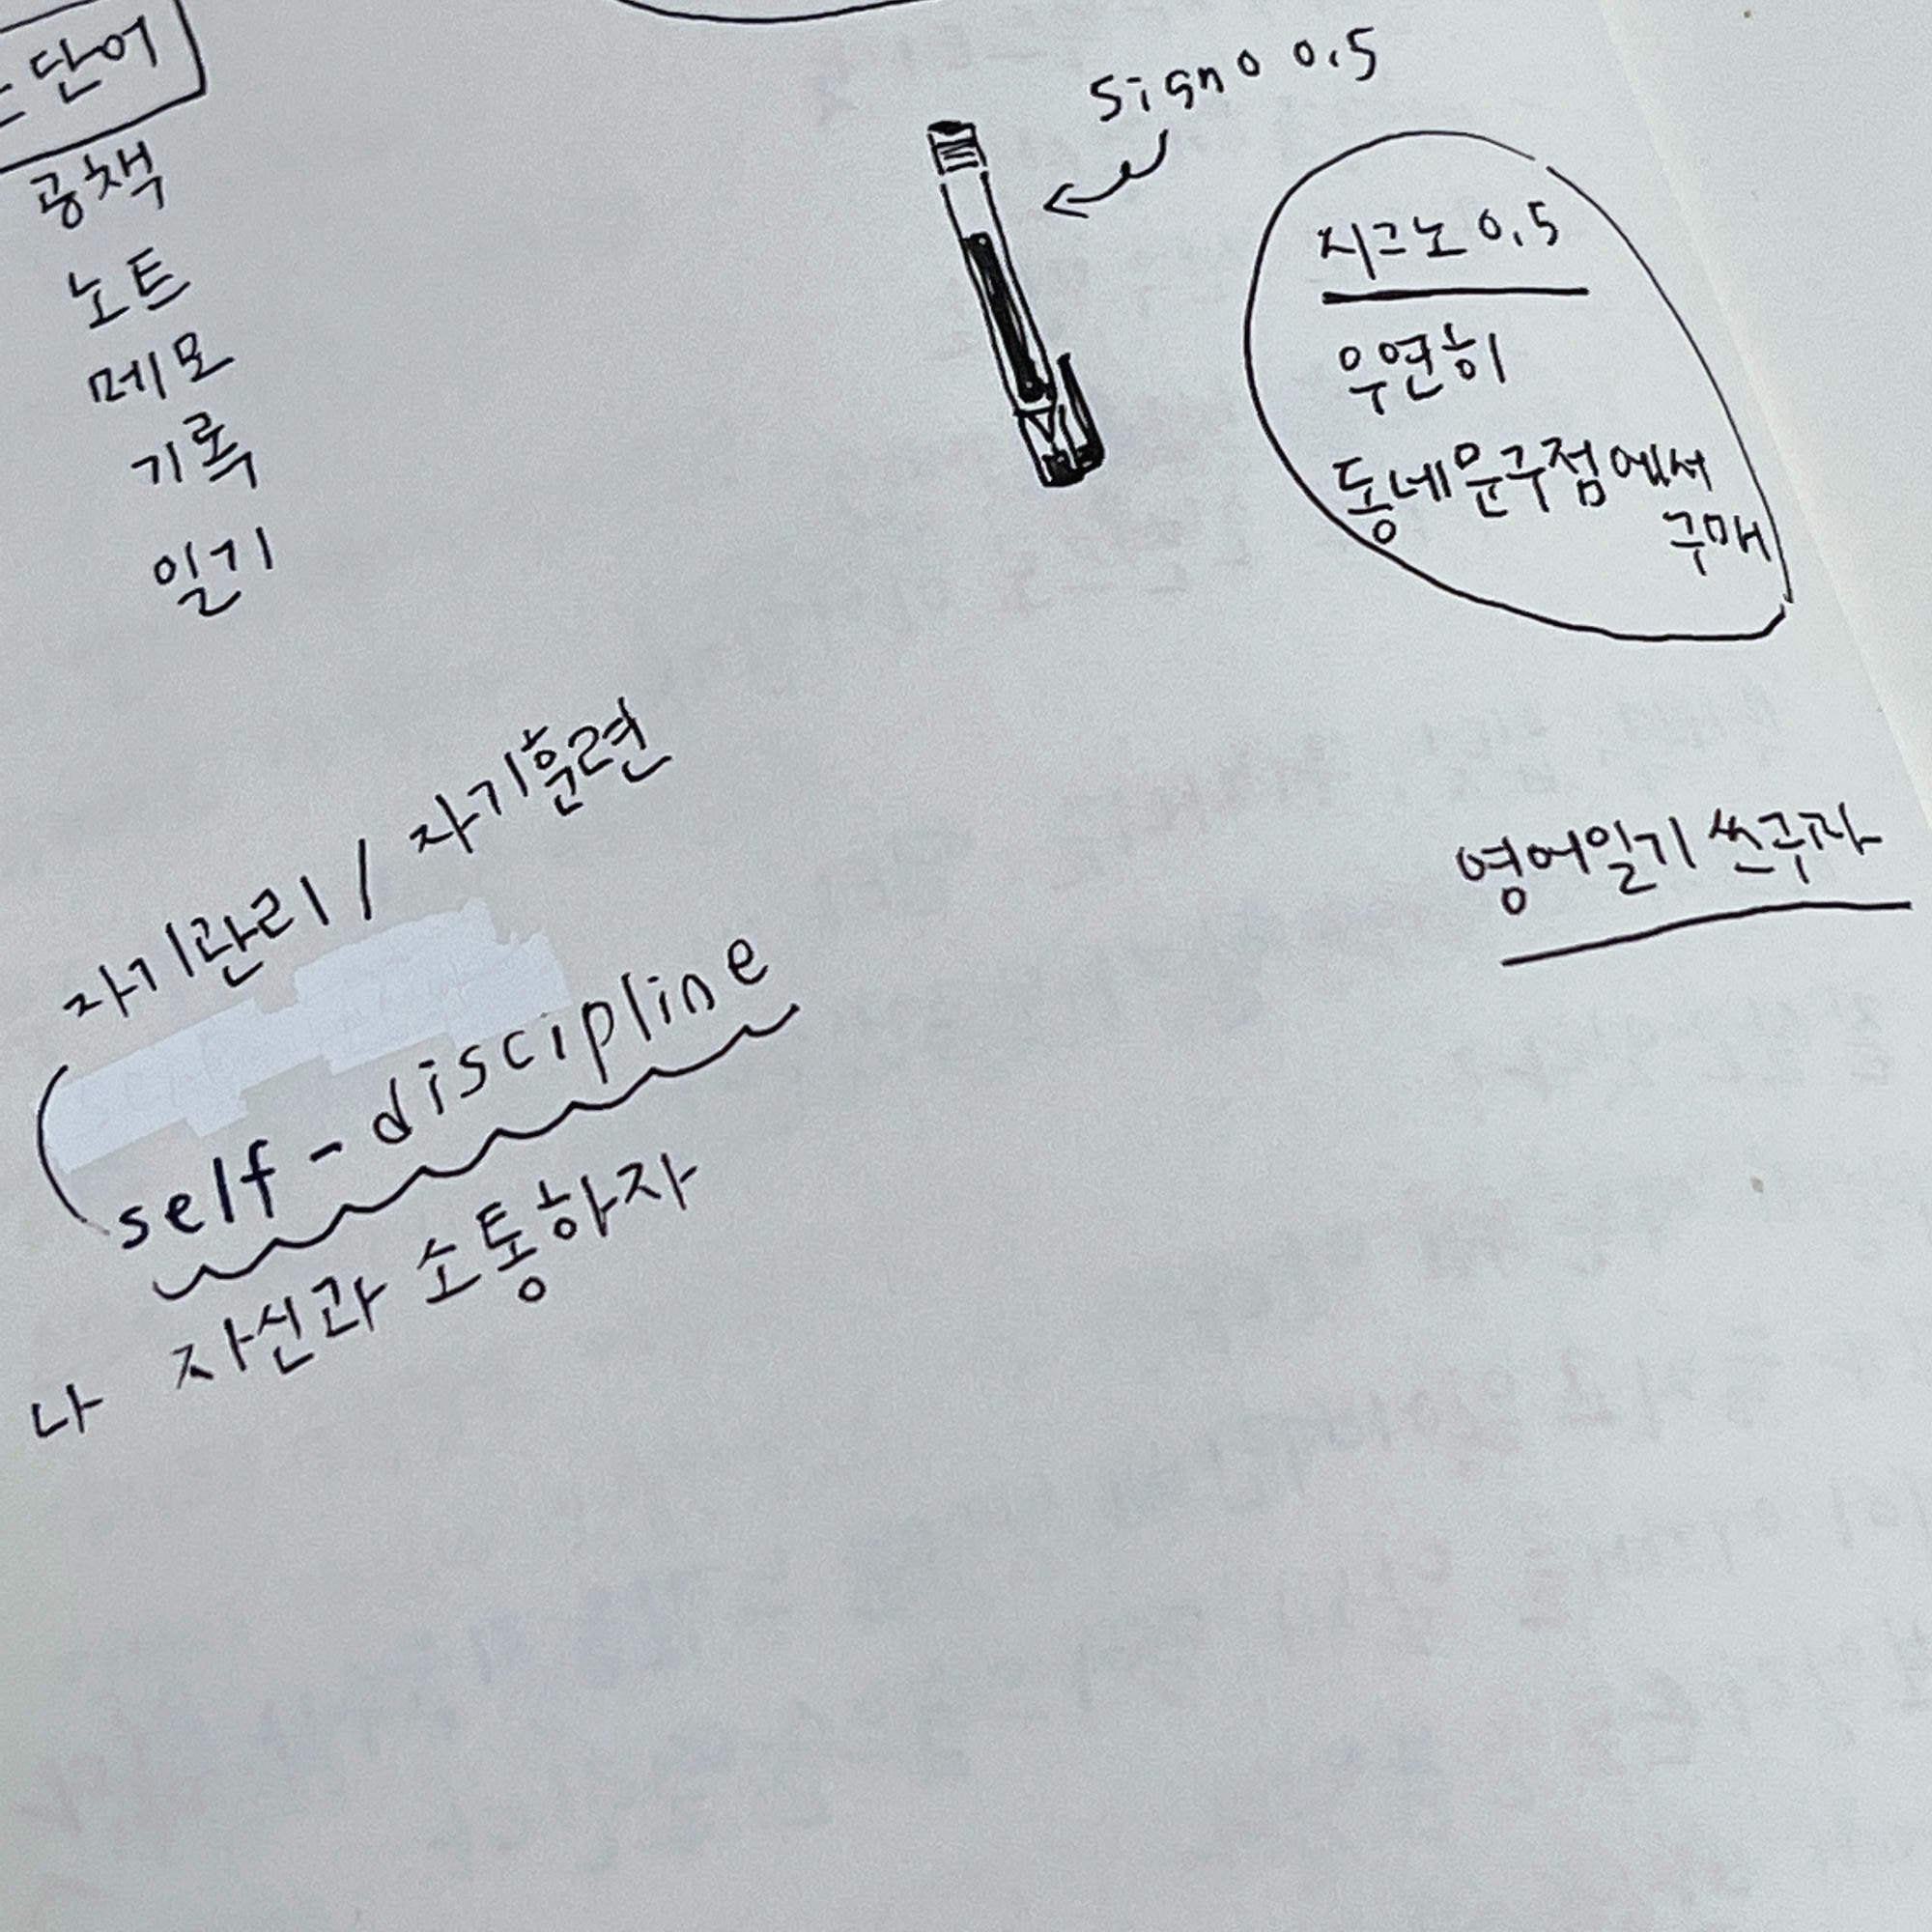 단어
공책
노트
메모
기록
일기
signo 0.5
시그노 0.5
우연히
동네문구점에서
구매
자기관리 / 자기훈련
self-discipline
나 자신과 소통하자
영어일기 쓰구파